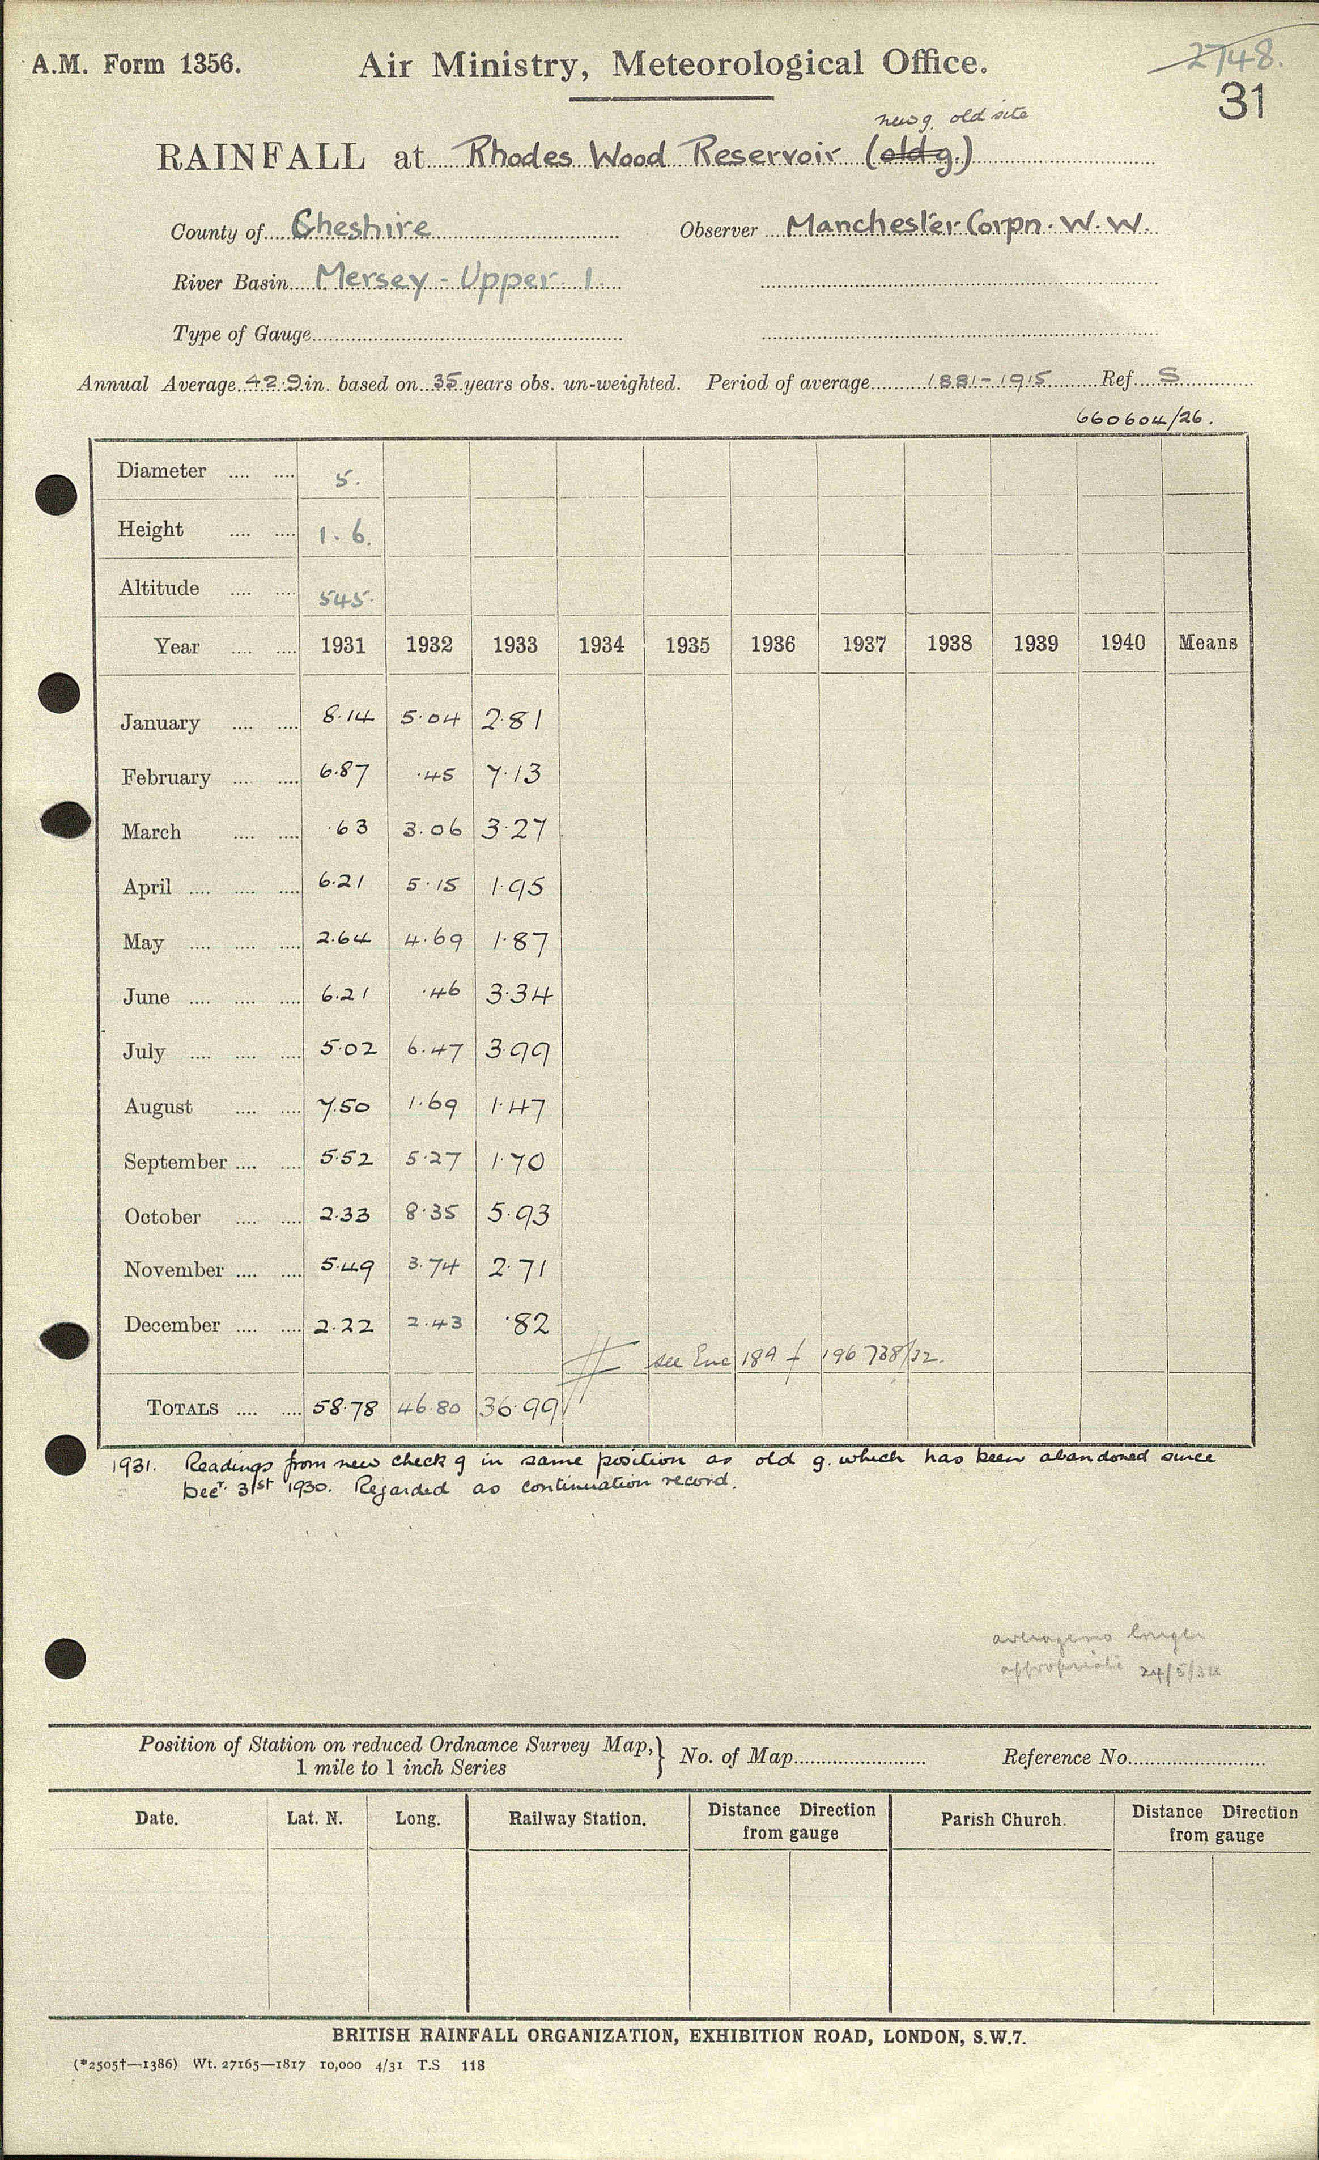 A.M. Form 1356.
Air Ministry, Meteorological Office.
2748.
31
new g. old site
RAINFALL at Rhodes Wood Reservoir (old g.)
County of Cheshire Observer Manchester Corpn. W.W.
River Basin Mersey - Upper 1
Type of Gauge
Annual Average 42.9 in. based on 35 years obs. un-weighted. Period of average 1881-1915 Ref. S
660604/26.
Diameter .... .... 5.
Height .... .... 1.6.
Altitude .... .... 545.
Year .... .... 1931 1932 1933 1934 1935 1936 1937 1938 1939 1940 Means
January .... .... 8.14 5.04 2.81
February .... .... 6.87 .45 7.13
March .... .... .63 3.06 3.27
April .... .... .... 6.21 5.15 1.95
May .... .... .... 2.64 4.69 1.87
June .... .... .... 6.21 .46 3.34
July .... .... .... 5.02 6.47 3.99
August .... .... 7.50 1.69 1.47
September .... .... 5.52 5.27 1.70
October .... .... 2.33 8.35 5.93
November .... .... 5.49 3.74 2.71
December .... .... 2.22 2.43 .82
see Enc 189 f 196738/32.
TOTALS .... .... 58.78 46.80 36.99
1931. Readings from new check g in same position as old g. which has been abandoned since
Decr. 31st 1930. Regarded as continuation record.
longer
appropriate 24/5/34
Position of Station on reduced Ordnance Survey Map, } No. of Map Reference No.
1 mile to 1 inch Series
Date. Lat. N. Long. Railway Station. Distance Direction from gauge Parish Church. Distance Direction from gauge
BRITISH RAINFALL ORGANIZATION, EXHIBITION ROAD, LONDON, S.W.7.
(*2505†—1386) Wt. 27165—1817 10,000 4/31 T.S 118